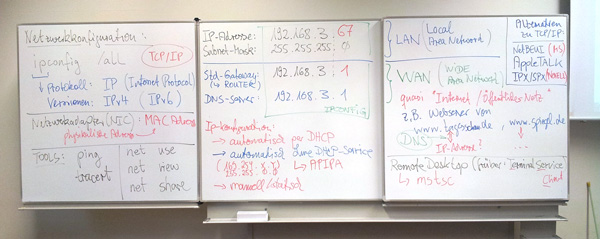 Netzwerkkonfiguration:
ipconfig /all TCP/IP
Protokoll: IP (Internet Protocol)
Versionen: IPv4 (IPv6)
Netzwerkadapter (NIC): MAC Adresse
physikalische Adresse
TOOLS: ping net use
tracert net view
net share
IP-Adresse: 192.168.3.67
Subnet-Mask: 255.255.255.0
Std-Gateway: 192.168.3.1
(→ ROUTER)
DNS-Server: 192.168.3.1
IPCONFIG
Ip-konfiguration:
→ automatisch per DHCP
→ automatisch ohne DHCP-Service
(169.254.x.y) → APIPA
255.255.0.0
→ manuell/statisch
LAN (Local
Area Network)
WAN (WIDE
Area Network)
quasi "Internet / Öffentliches-Netz"
z.B. Webserver von
www.tagesschau.de, www.spiegel.de
DNS → IP-Adresse? ...
Remote Desktop (früher: Terminal Service
↳ mstsc Client
Alternativen
zu TCP/IP:
NetBEUI (MS)
AppleTALK
IPX/SPX (NOVELL)